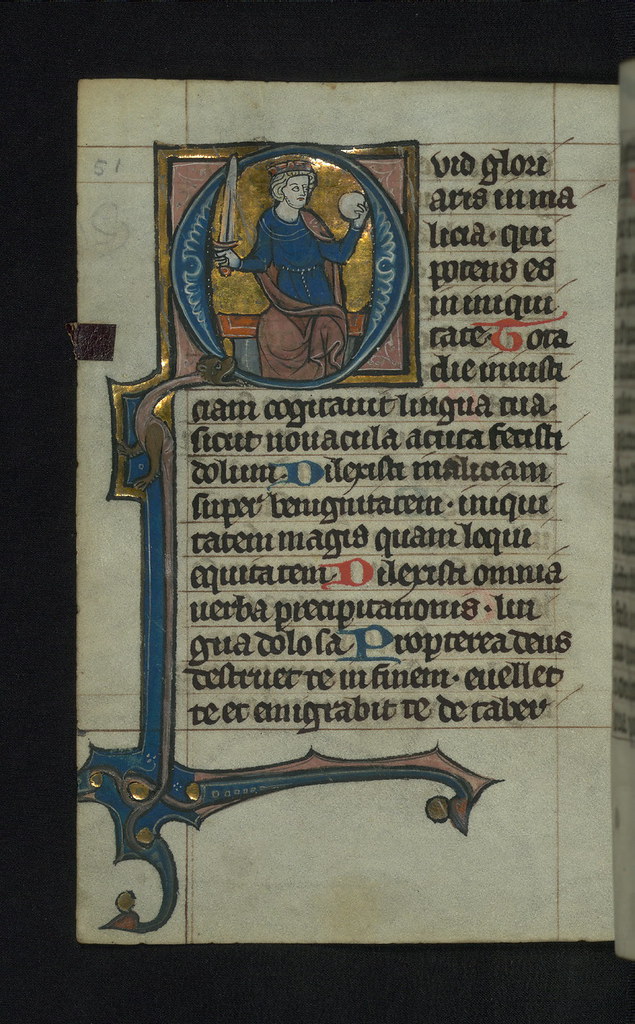 51
Quid glori
aris in ma
licia · qui
potens es
in iniqui
tate · Tota
die iniusti
ciam cogitauit lingua tua ·
sicut nouacula acuta fecisti
dolum · Dilexisti maliciam
super benignitatem · iniqui
tatem magis quam loqui
equitatem Dilexisti omnia
uerba precipitationis · lin
gua dolosa Propterea deus
destruet te in finem · euellet
te et emigrabit te de taber